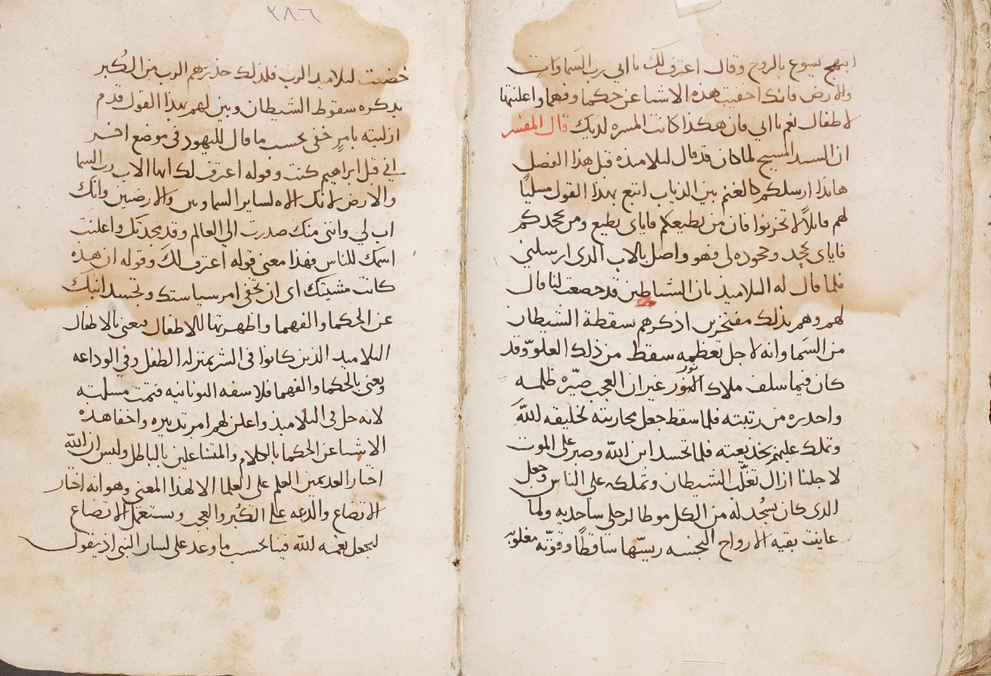 ابتهج يسوع بالروح وقال اعترف لك يا ابي رب السماوات
والارض فانك اخفيت هذه الاشيا عن حكما وفهما واعلنتها
لاطفال نعم يا ابي فان هكذا كانت المسره لديك قال المفسر
ان السيد المسيح لما كان قد قال لتلاميذه قبل هذا الفصل
هانذا ارسلكم كالغنم بين الذياب اتبع بهذا القول مسليًا
لهم قايلاً لا تحزنوا فان من يطيعكم فاياي يطيع ومن يجحدكم
فاياي يجحد وجحوده لي فهو واصل بالاب الذي ارسلني
فلما قال له التلاميذ بان الشياطين قد خضعت لنا قال
لهم وهم بذلك مفتخرين اذكرهم سقطة الشيطان
من السما وانه لاجل تعظمه سقط من ذلك العلو وقد
كان فيما سلف ملاك النور غير ان العجب صيره ظلمه
واحدره من رتبته فلما سقط جعل محاربته لخليقه الله
وتملك عليهم بخديعته فلما تجسد ابن الله وصبر على الموت
لاجلنا ازال تغلب الشيطان وتملكه على الناس وجعل
الذي كان يسجد له من الكل موطا لرجلي ساجديه ولما
عاينت بقيه الارواح النجسه ريسها ساقطًا وقوته مغلوبه
٢٨٦
خضعت لتلاميذ الرب فلذلك حذرهم الرب من الكبر
بذكره سقوط الشيطان وبين لهم بهذا القول قدم
ازليته بامرٍ خفي بحسب ما قال لليهود في موضع اخر
اني قبل ابراهيم كنت وقوله اعترف لك ايها الاب رب السما
والارض لانك الاه لساير السماويين والارضيين وانك
اب لي وانني منك صدرت الي العالم وقد مجدتك واعلنت
اسمك للناس فهذا معنى قوله اعترف لك وقوله ان هذه
كانت مشيتك اي ان تخفى امر سياستك وتجسد ابنك
عن الحكما والفهما واظهرتها للاطفال يعني بالاطفال
التلاميذ الذين كانوا في الشر بمنزله الطفل وفي الوداعه
يعني بالحكما والفهما فلاسفه اليونانيه فتمت مسلبته
لانه حل في التلاميذ واعلن لهم امر تدبيره واخفا هذه
الاشيا عن الحكما بالكلام والمتشاغلين بالباطل وليس ان الله
اختار العديمين العلم على العلما الا لهذا المعنى وهو انه اختار
الاتضاع والدعه على الكبر والعجب ونستعمل الاتضاع
لتحل نعمه الله فينا بحسب ما وعد على لسان النبي اذ يقول